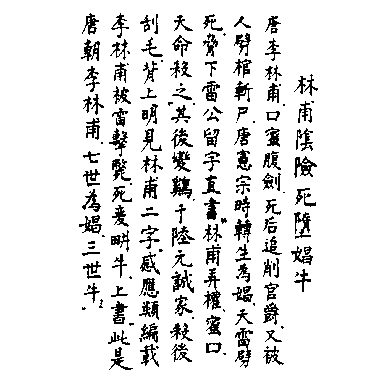 林甫陰險死墮娼牛
唐李林甫、口蜜腹劍、死后追削官爵、又被
人劈棺斬尸、唐憲宗時韓生為娼、天雷劈
死、脅下雷公留字直書"林甫弄權、蜜口
天命殺之"其後變鷄于陸元誠家、殺後
刮毛、背上明見林甫二字"感應類編載
李林甫被雷擊斃、死變畊牛、上書"此是
唐朝李林甫、七世為娼、三世牛"